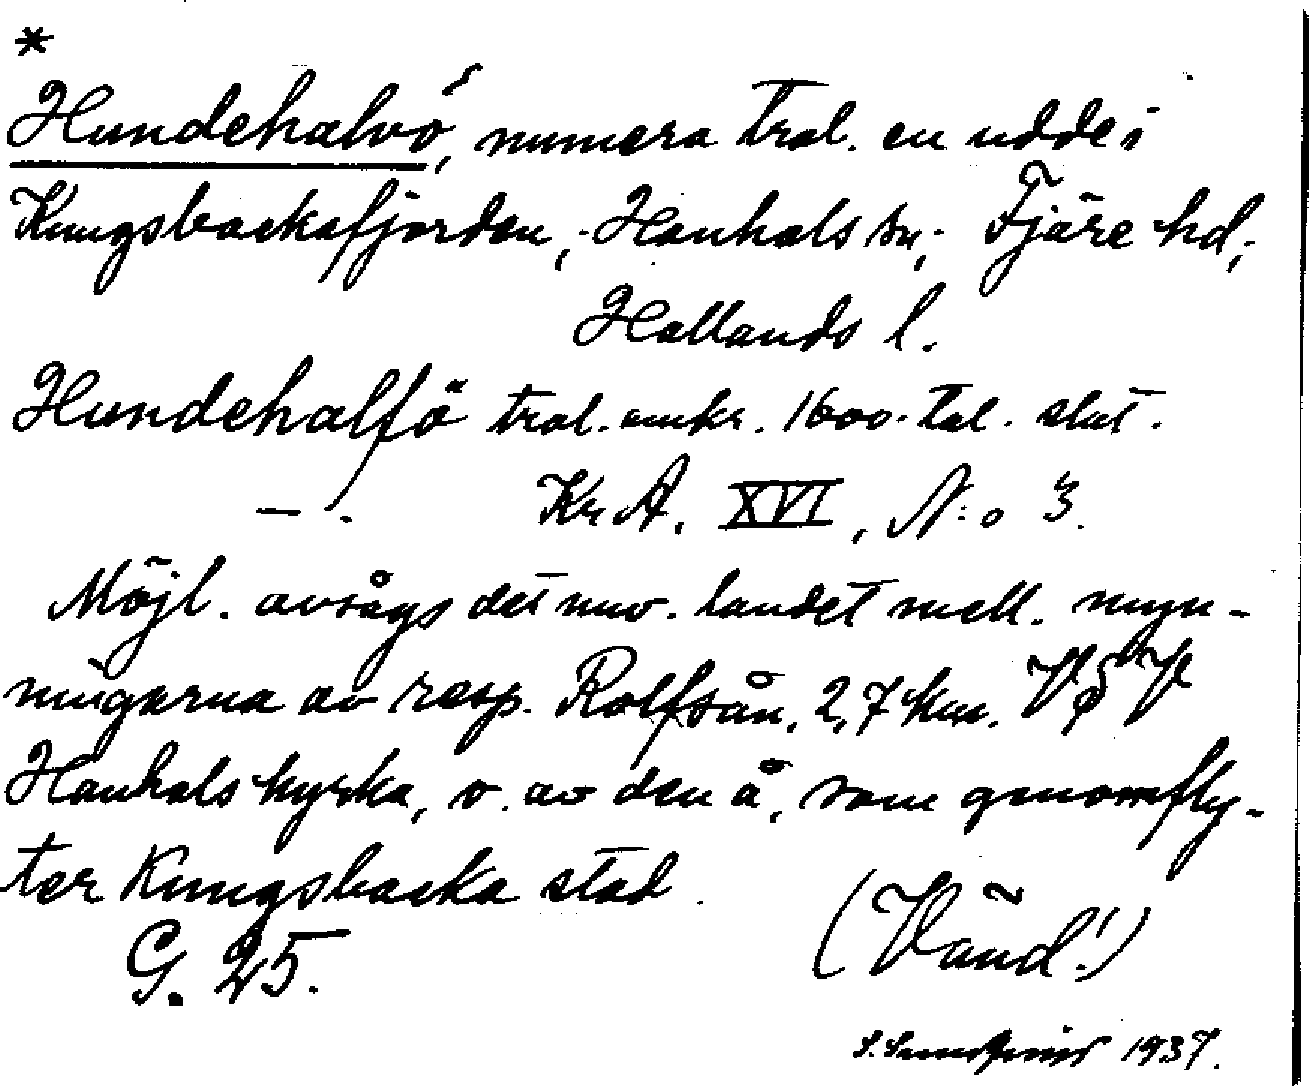 *
Hundehalvö, numera trol. en udde i
Kungsbackafjorden, Hanhals sn, Fjäre hd,
Hallands l.
Hundehalfö trol. omkr. 1600-tal. slut.
— . Kr A. XVI, N:o 3.
Möjl. avsågs det nuv. landet mell. myn-
ningarna av resp. Rolfsån, 2,7 km.
Hanhals kyrka, o. av den å, som genomfly-
ter Kungsbacka stad.
G. 25.
(Vänd!)
1937.